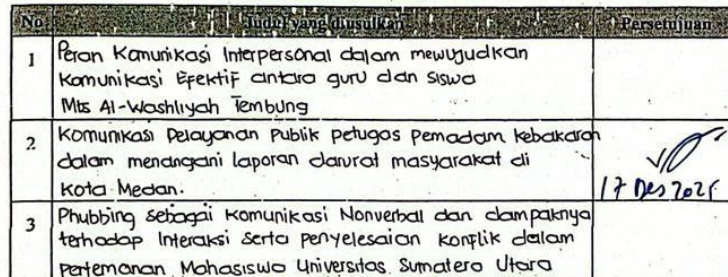 No. Judul yang diusulkan Persetujuan
1 Peran Komunikasi Interpersonal dalam mewujudkan
Komunikasi Efektif antara guru dan siswa
Mts Al-Washliyah Tembung
2 Komunikasi Pelayanan Publik petugas pemadam kebakaran
dalam menangani laporan darurat masyarakat di
Kota Medan.
17 Des 2025
3 Phubbing sebagai Komunikasi Nonverbal dan dampaknya
terhadap Interaksi serta penyelesaian konflik dalam
pertemanan Mahasiswa Universitas Sumatera Utara